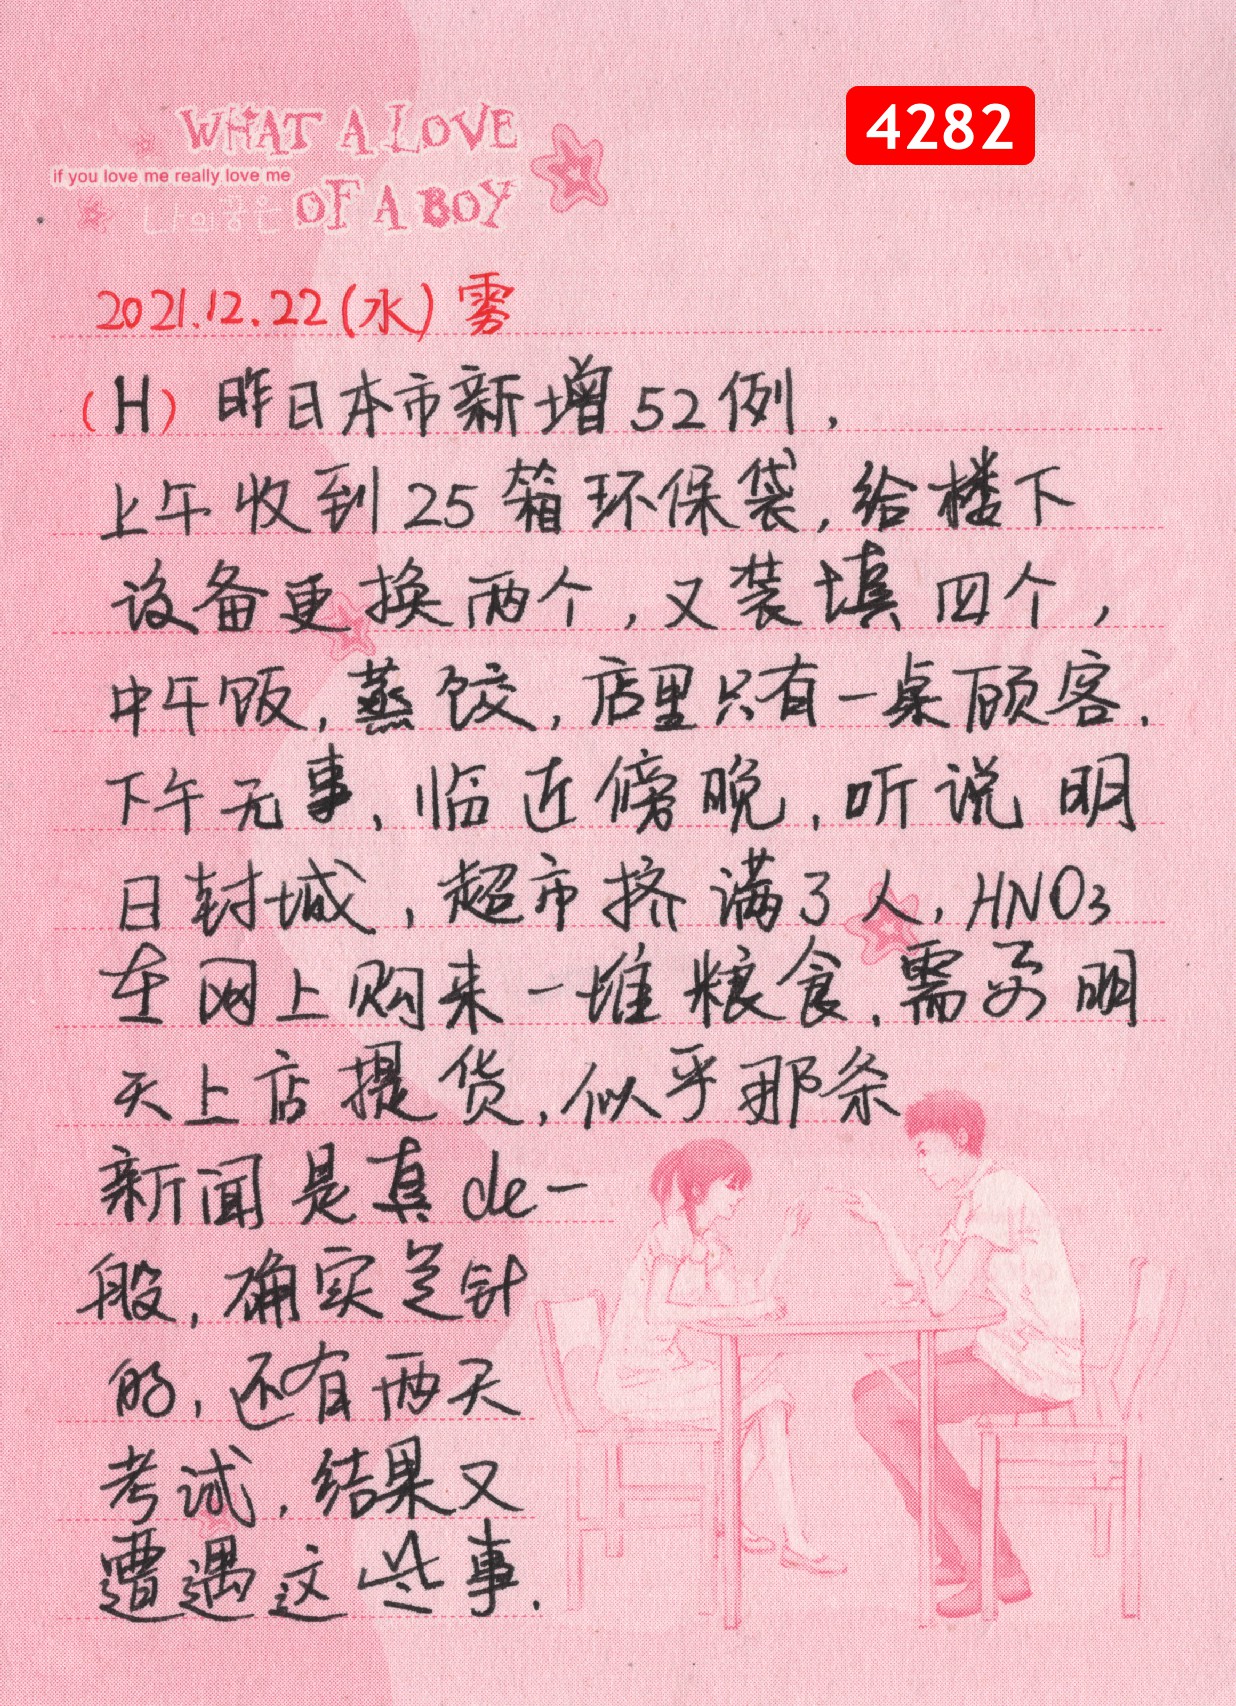 WHAT A LOVE
if you love me really love me
나의꿈은 OF A BOY
4282
2021.12.22(水) 雾
(H) 昨日本市新增52例,
上午收到25箱环保袋,给楼下
设备更换两个,又装填四个,
中午饭,蒸饺,店里只有一桌顾客.
下午无事,临近傍晚,听说明
日封城,超市挤满了人,HNO3
在网上购来一堆粮食,需要明
天上店提货,似乎那条
新闻是真de一
般,确实是针
的,还有两天
考试,结果又
遭遇这些事.